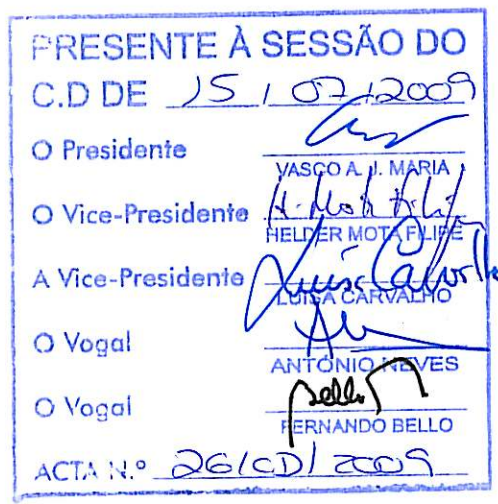 PRESENTE À SESSÃO DO
C.D DE 15 / 07 / 2009
O Presidente
VASCO A. J. MARIA
O Vice-Presidente H. Mota Filipe
HELDER MOTA FILIPE
A Vice-Presidente Luísa Carvalho
LUISA CARVALHO
O Vogal
ANTÓNIO NEVES
O Vogal Bello
FERNANDO BELLO
ACTA N.º 26/CD/2009